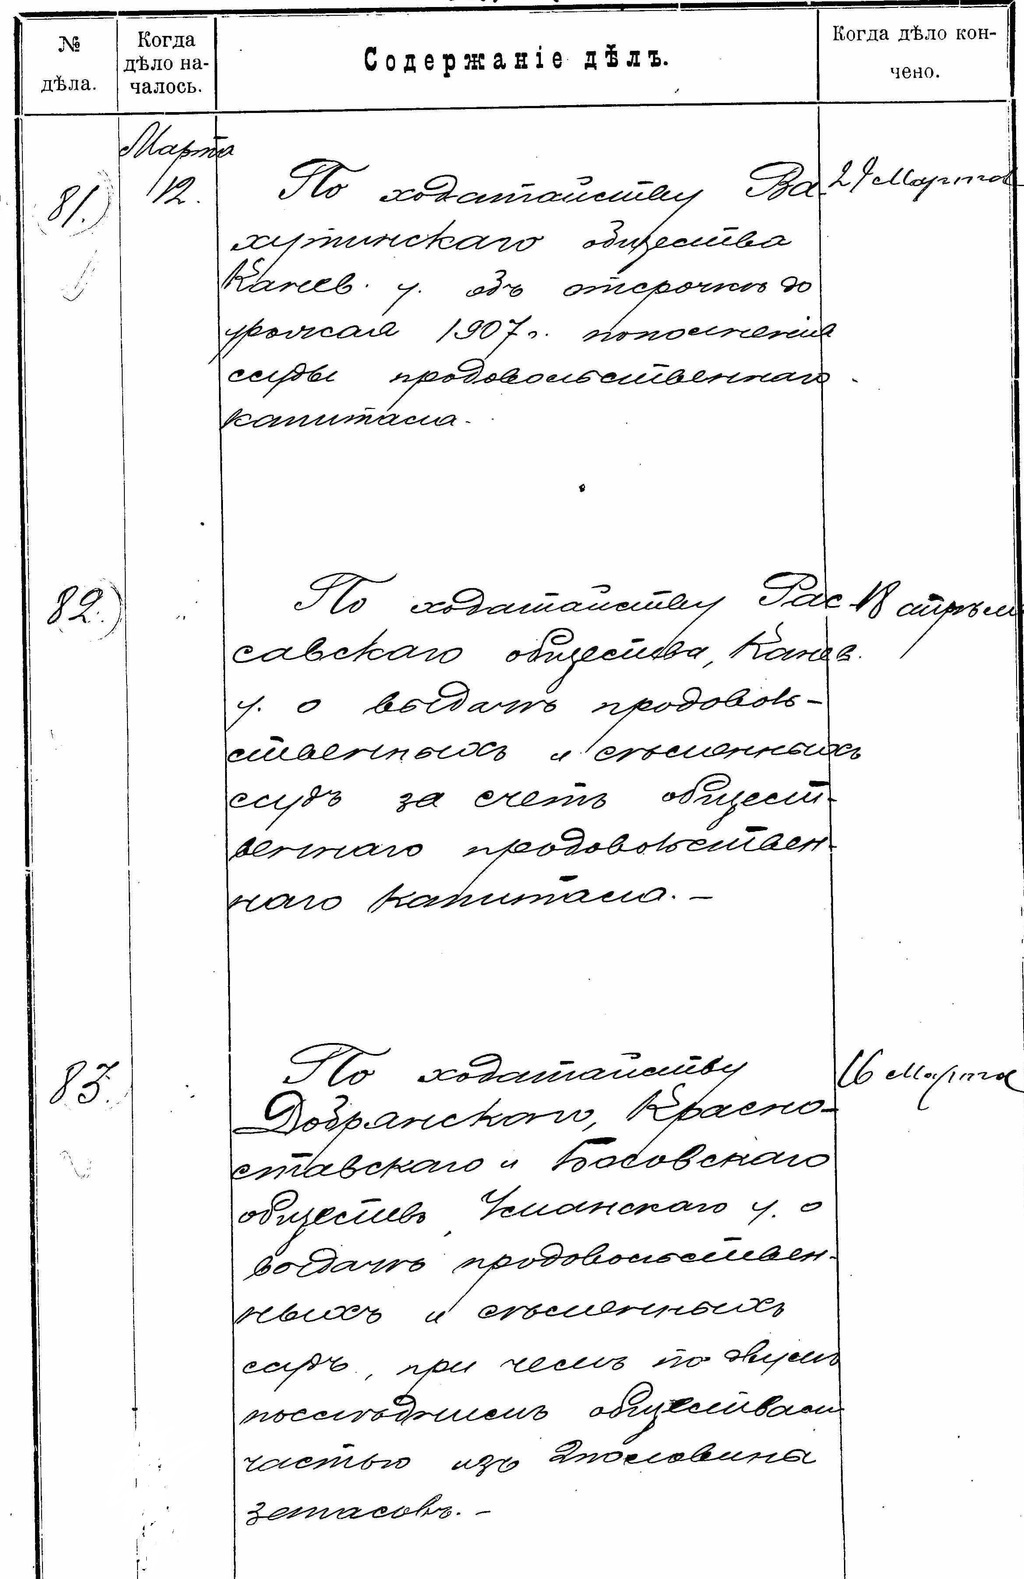 № дѣла.
Когда дѣло на-
чалось.
Содержаніе дѣлъ.
Когда дѣло кон-
чено.
Марта
81.) 12. По ходатайству Ва-
хутинскаго общества
Канев. у. объ отсрочкѣ до
урожая 1907 г. пополненія
ссуды продовольственнаго
капитала.
29 Марта
82.) По ходатайству Рас-
савскаго общества, Канев.
у. о выдачѣ продоволь-
ственныхъ и сѣменныхъ
ссудъ за счетъ общест-
веннаго продовольствен-
наго капитала. —
18 апрѣля
83. По ходатайству
Добрянскаго, Красно-
ставскаго и Босовскаго
обществъ, Уманскаго у. о
выдачѣ продовольствен-
ныхъ и сѣменныхъ
ссудъ, при чемъ по двумъ
послѣднимъ обществамъ
частью изъ
запасовъ. —
16 Марта